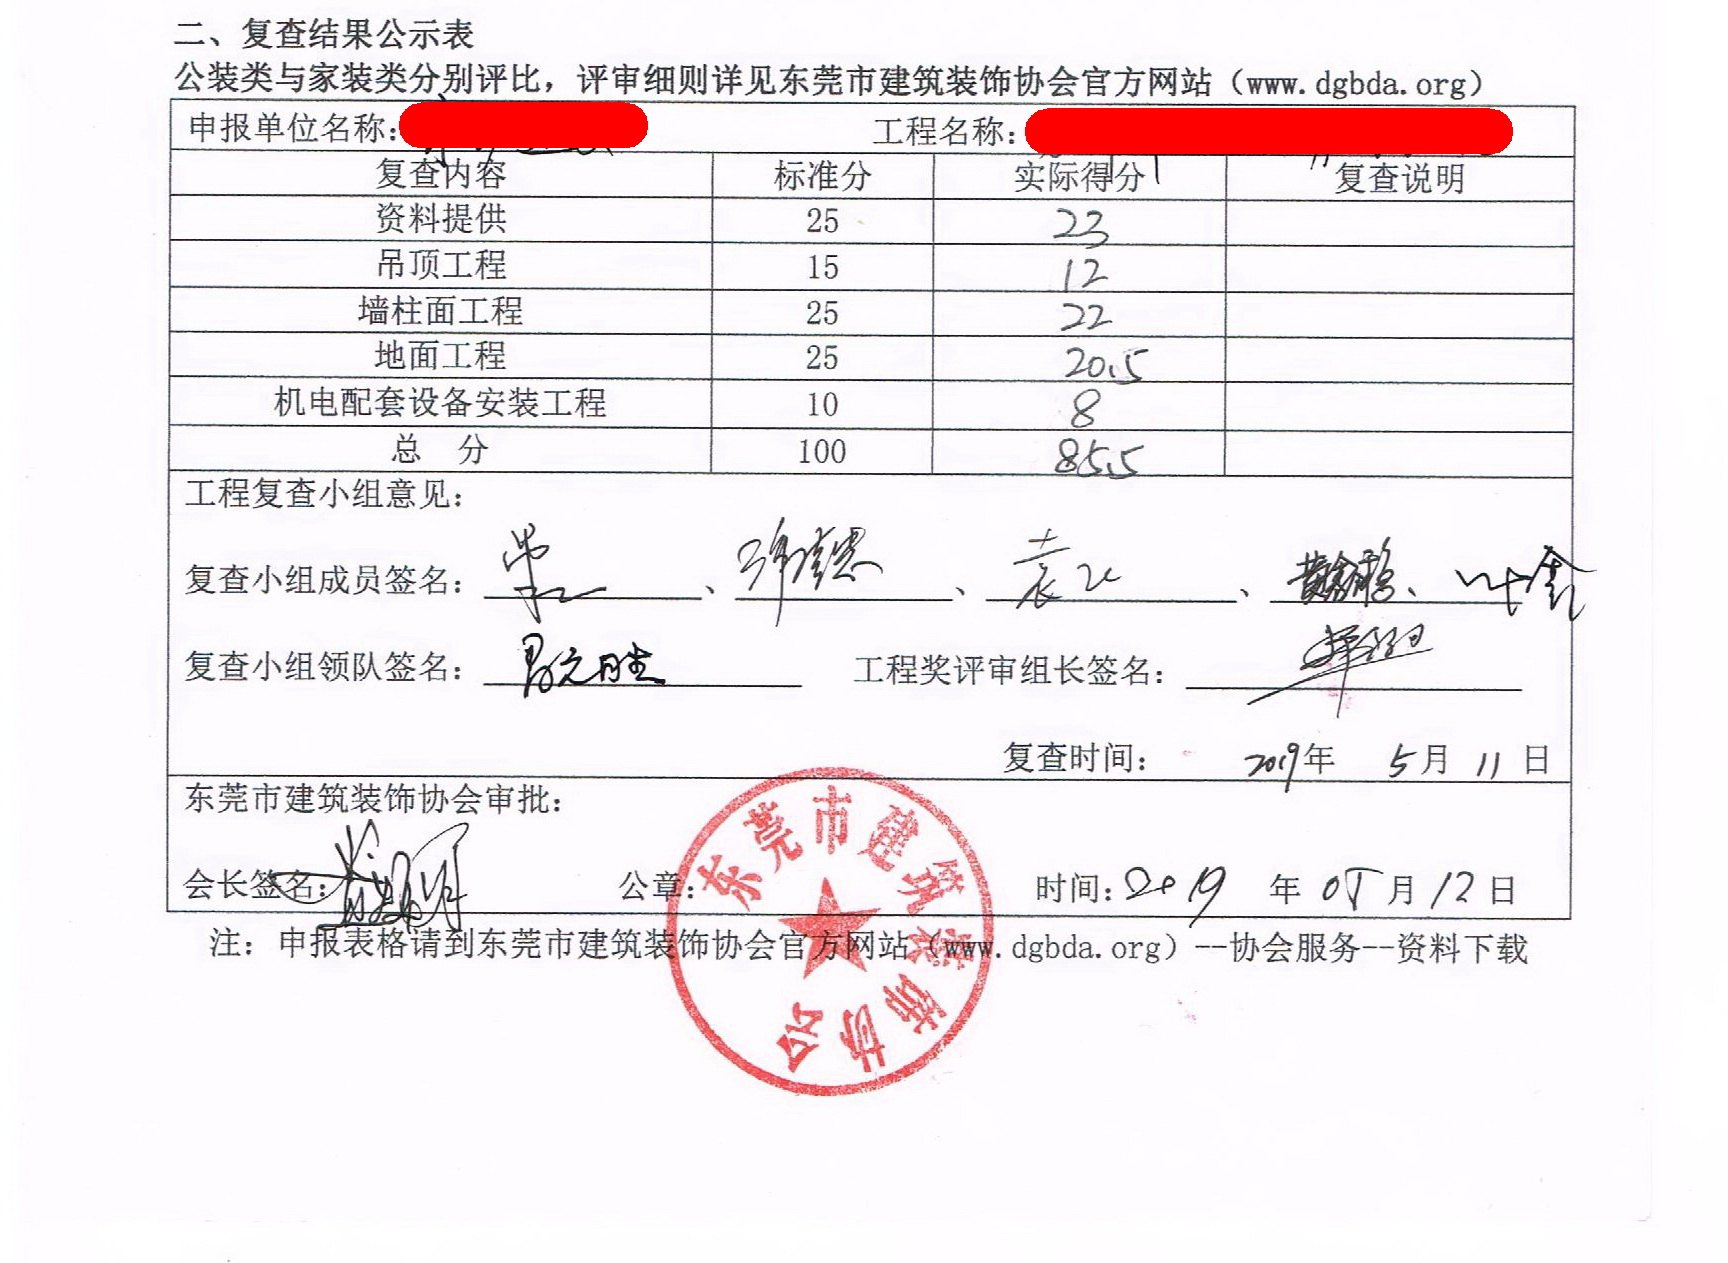 二、复查结果公示表
公装类与家装类分别评比，评审细则详见东莞市建筑装饰协会官方网站（www.dgbda.org）
申报单位名称： 工程名称：
复查内容 标准分 实际得分 复查说明
资料提供 25 23
吊顶工程 15 12
墙柱面工程 25 22
地面工程 25 20.5
机电配套设备安装工程 10 8
总 分 100 85.5
工程复查小组意见：
复查小组成员签名： 、 、 、 、
复查小组领队签名： 工程奖评审组长签名：
复查时间： 2019年 5月 11日
东莞市建筑装饰协会审批：
会长签名： 公章： 时间：2019 年 05 月 12 日
东莞市建筑装饰协会
注：申报表格请到东莞市建筑装饰协会官方网站（www.dgbda.org）--协会服务--资料下载